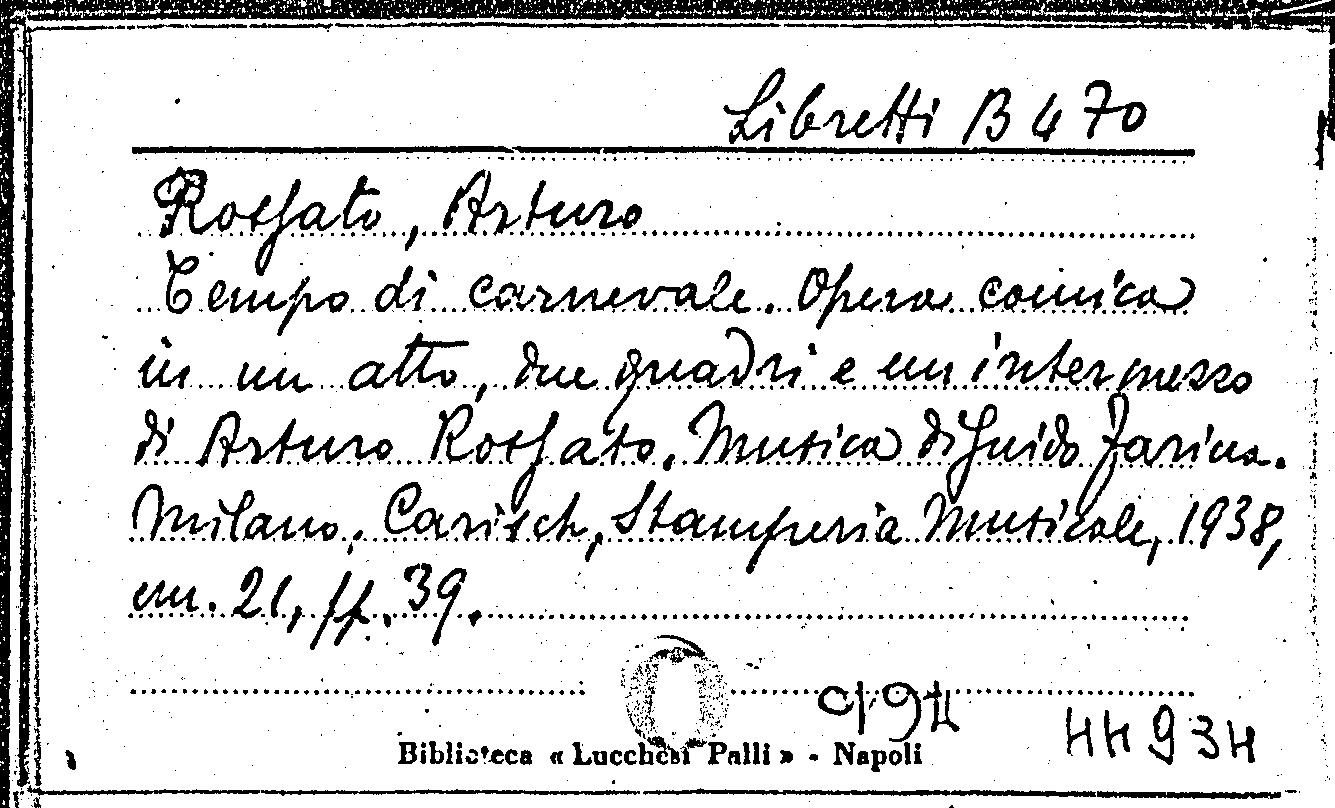 Libretti B 470
Rossato, Arturo
Tempo di carnevale. Opera comica
in un atto, due quadri e un intermezzo
di Arturo Rossato. Musica di Guido Farina.
Milano, Carisch, Stamperia Musicale, 1938,
cm. 21, pp. 39.
44934
Biblioteca « Lucchesi Palli » - Napoli